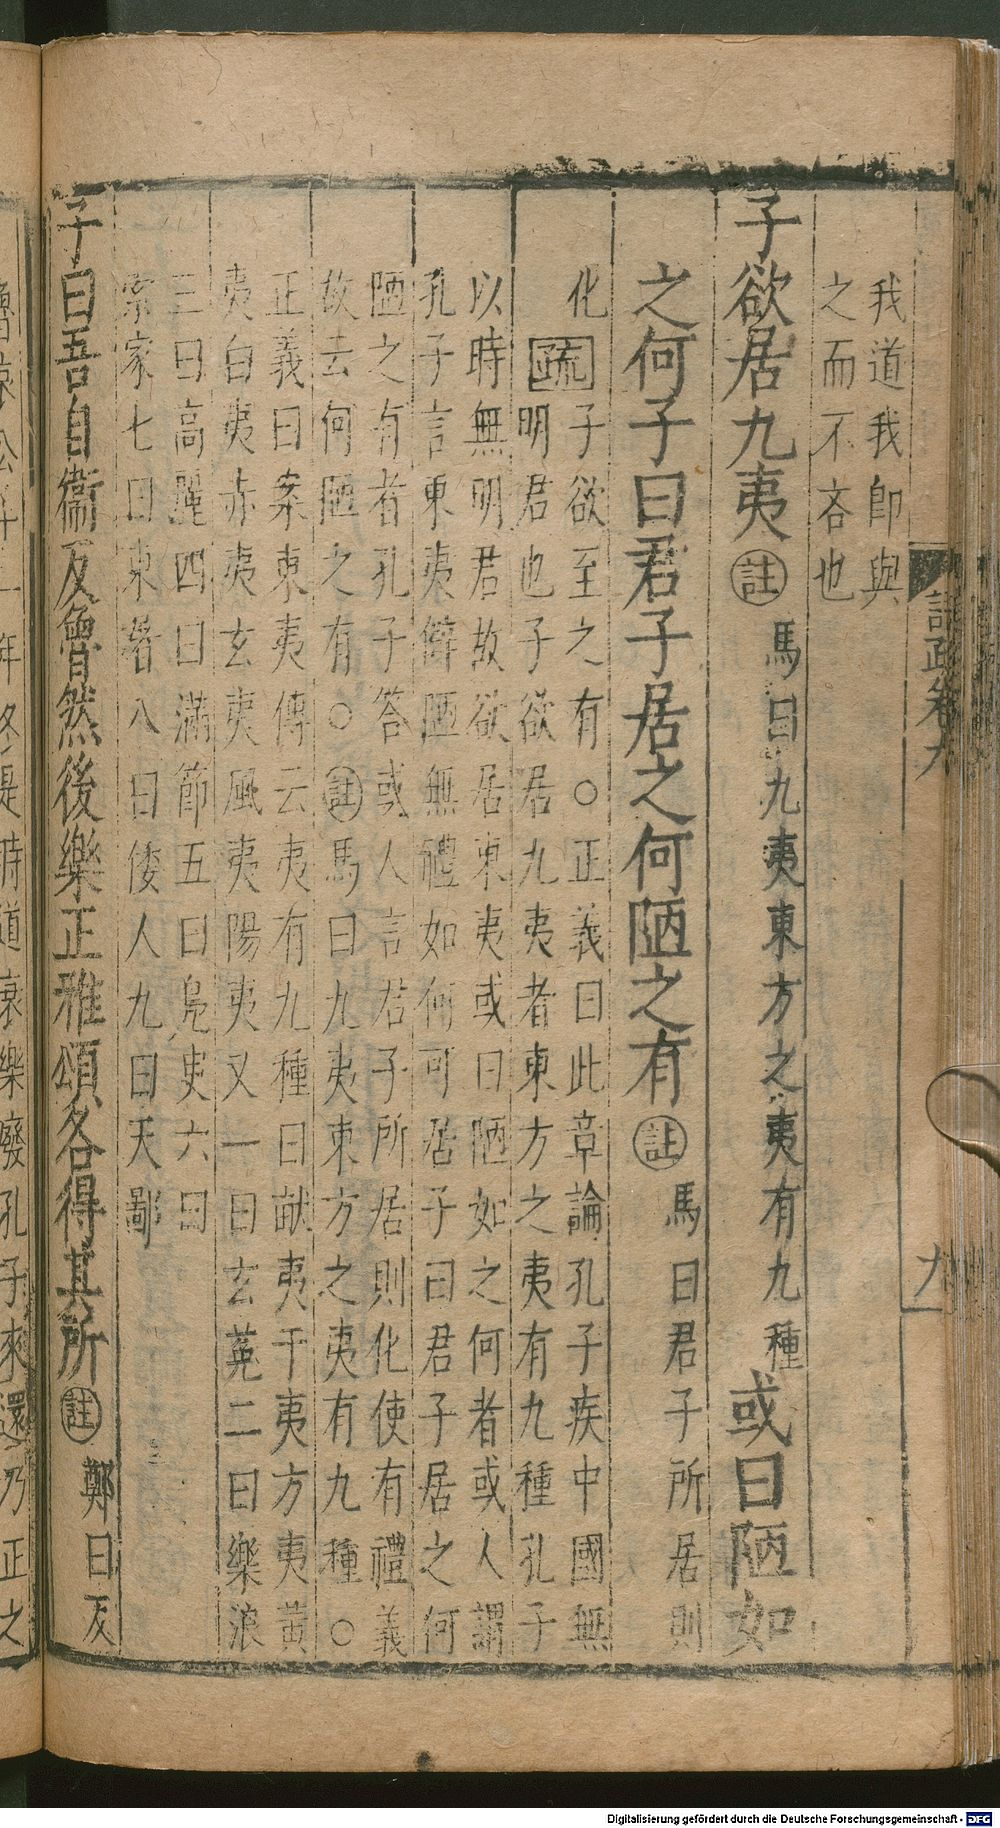 我道我卽與
之而不吝也
子欲居九夷註馬曰九夷東方之夷有九種或曰陋如
之何子曰君子居之何陋之有註馬曰君子所居則
化
疏子欲至之有○正義曰此章論孔子疾中國無
明君也子欲居九夷者東方之夷有九種孔子
以時無明君故欲居東夷或曰陋如之何者或人謂
孔子言東夷僻陋無禮如何可居子曰君子居之何
陋之有者孔子答或人言君子所居則化使有禮義
故去何陋之有○註馬曰九夷東方之夷有九種○
正義曰案東夷傳云夷有九種曰畎夷干夷方夷黃
夷白夷赤夷玄夷風夷陽夷又一曰玄菟二曰樂浪
三曰高麗四曰滿節五曰鳧臾六曰
索家七曰東屠八曰倭人九曰天鄙
子曰吾自衞反魯然後樂正雅頌各得其所註鄭曰反
魯哀公十一年冬是時道衰樂廢孔子來還乃正之
九